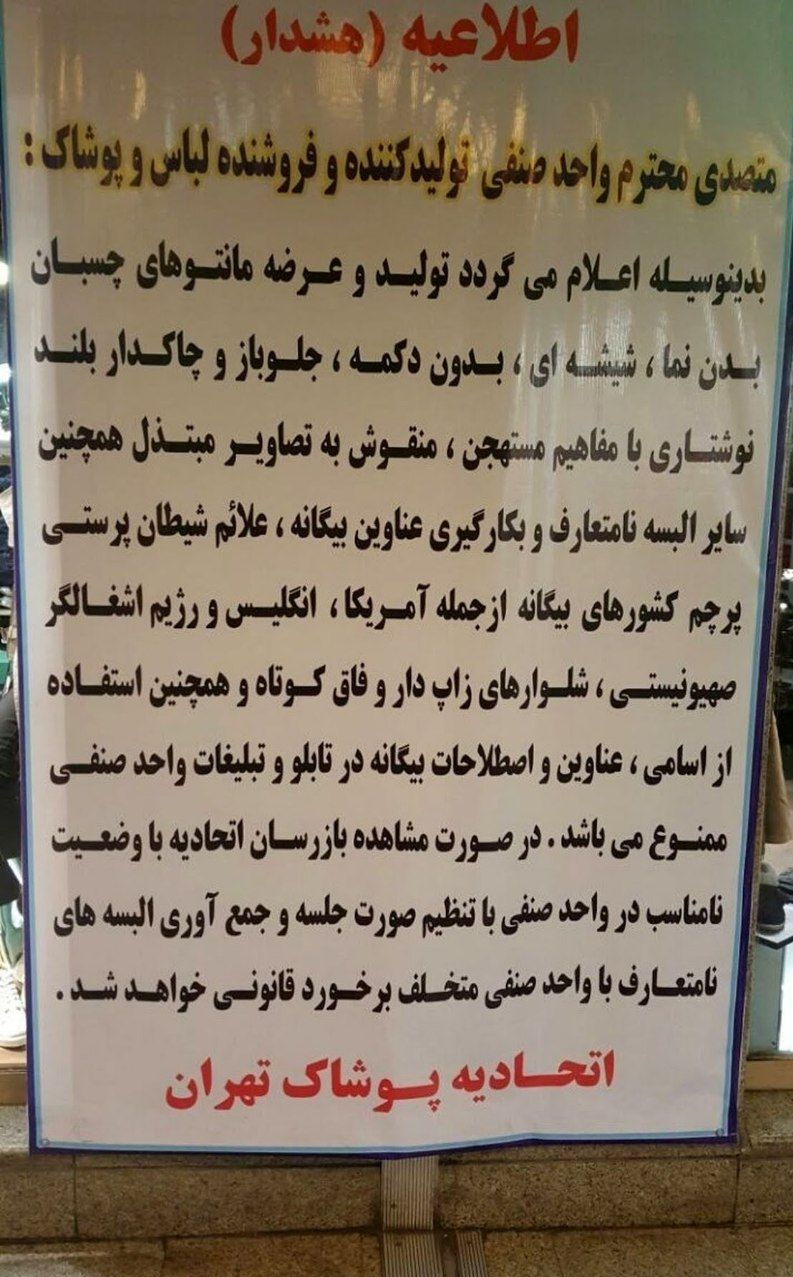 اطلاعیه (هشدار)
متصدی محترم واحد صنفی تولیدکننده و فروشنده لباس و پوشاک :
بدینوسیله اعلام می گردد تولید و عرضه مانتوهای چسبان
بدن نما ، شیشه ای ، بدون دکمه ، جلوباز و چاکدار بلند
نوشتاری با مفاهیم مستهجن ، منقوش به تصاویر مبتذل همچنین
سایر البسه نامتعارف و بکارگیری عناوین بیگانه ، علائم شیطان پرستی
پرچم کشورهای بیگانه ازجمله آمریکا ، انگلیس و رژیم اشغالگر
صهیونیستی ، شلوارهای زاپ دار و فاق کوتاه و همچنین استفاده
از اسامی ، عناوین و اصطلاحات بیگانه در تابلو و تبلیغات واحد صنفی
ممنوع می باشد . در صورت مشاهده بازرسان اتحادیه با وضعیت
نامناسب در واحد صنفی با تنظیم صورت جلسه و جمع آوری البسه های
نامتعارف با واحد صنفی متخلف برخورد قانونی خواهد شد .
اتحادیه پوشاک تهران